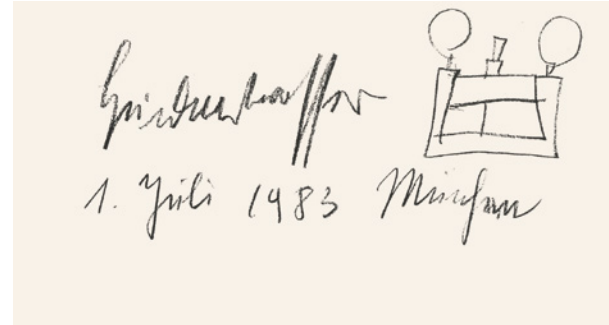 Hundertwasser
1. Juli 1983 München